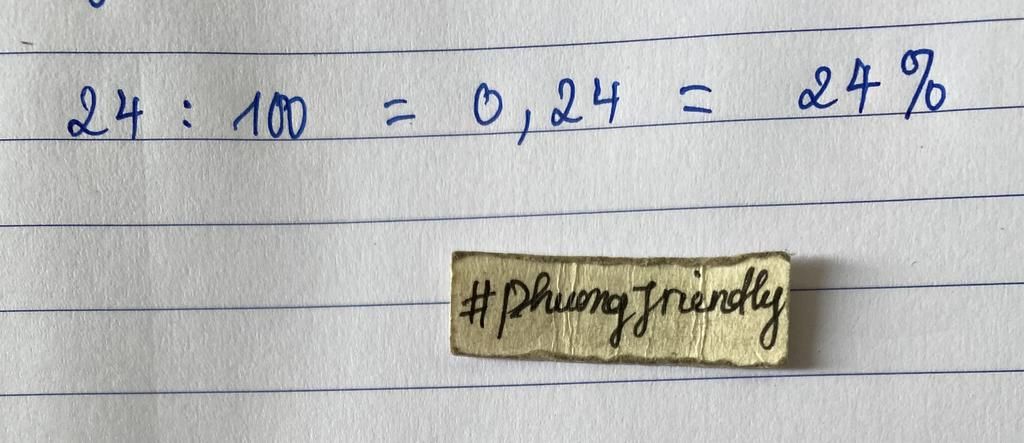 24 : 100 = 0,24 = 24%
#phuongfriendly